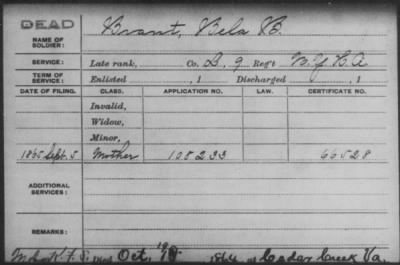 DEAD
NAME OF SOLDIER: Brant, Bela B.
SERVICE: Late rank, Co. L. 9 Reg't N.Y.H.A
TERM OF SERVICE: Enlisted , 1 Discharged , 1
DATE OF FILING. CLASS. APPLICATION NO. LAW. CERTIFICATE NO.
Invalid,
Widow,
Minor,
1865 Sept. 5 Mother 108233 66528
ADDITIONAL SERVICES:
REMARKS:
Oct. 19 1864 at Cedar Creek Va.